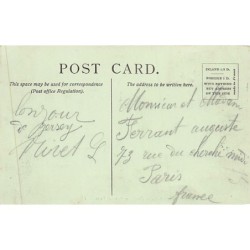 POST CARD.
This space may be used for correspondence
(Post office Regulation).
The address to be written here.
bonjour
de Jersey
Monsieur et Madame
Ferrant auguste
73 rue du cherche midi
Paris
france